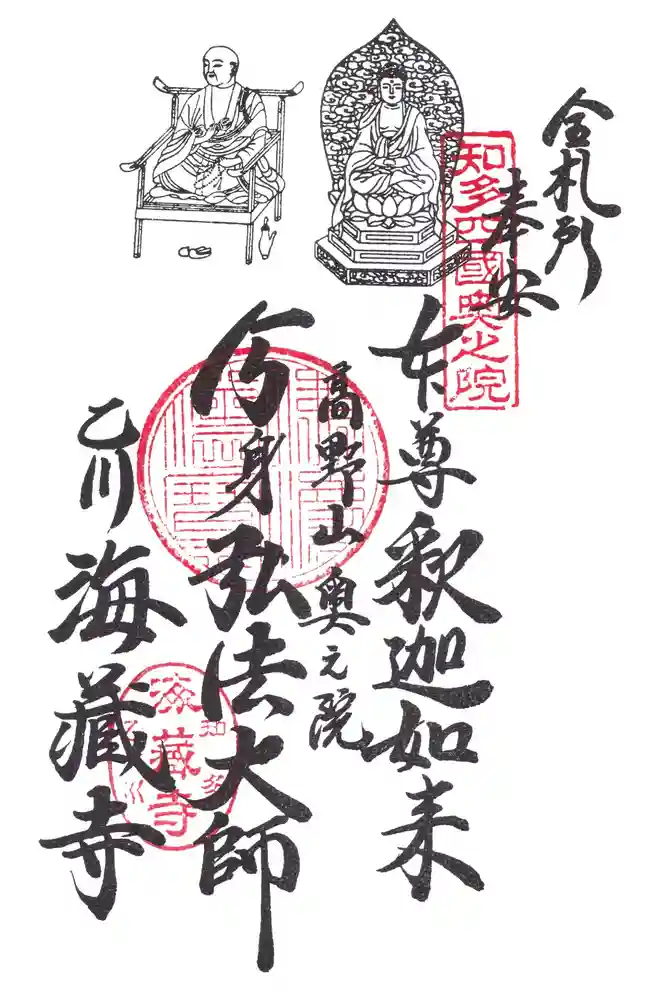 全札所
奉安
知多四國奥之院
本尊釈迦如来
高野山奥之院
分身弘法大師
乙川
海藏寺
知多
海藏寺
乙川